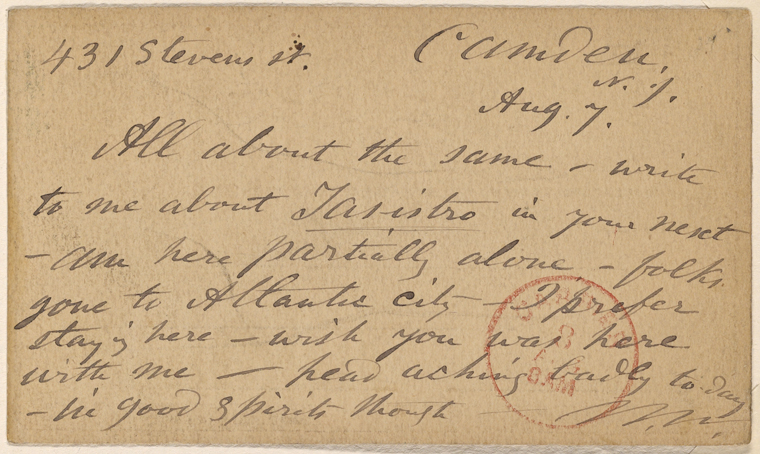 431 Stevens st.
Camden,
N. J.
Aug. 7.
All about the same – write
to me about Tasistro in your next
– am here partially alone, – folks
gone to Atlantic city – I prefer
staying here – wish you was here
with me — head aching badly to day
– in good spirits though
W.W.
8
8 AM